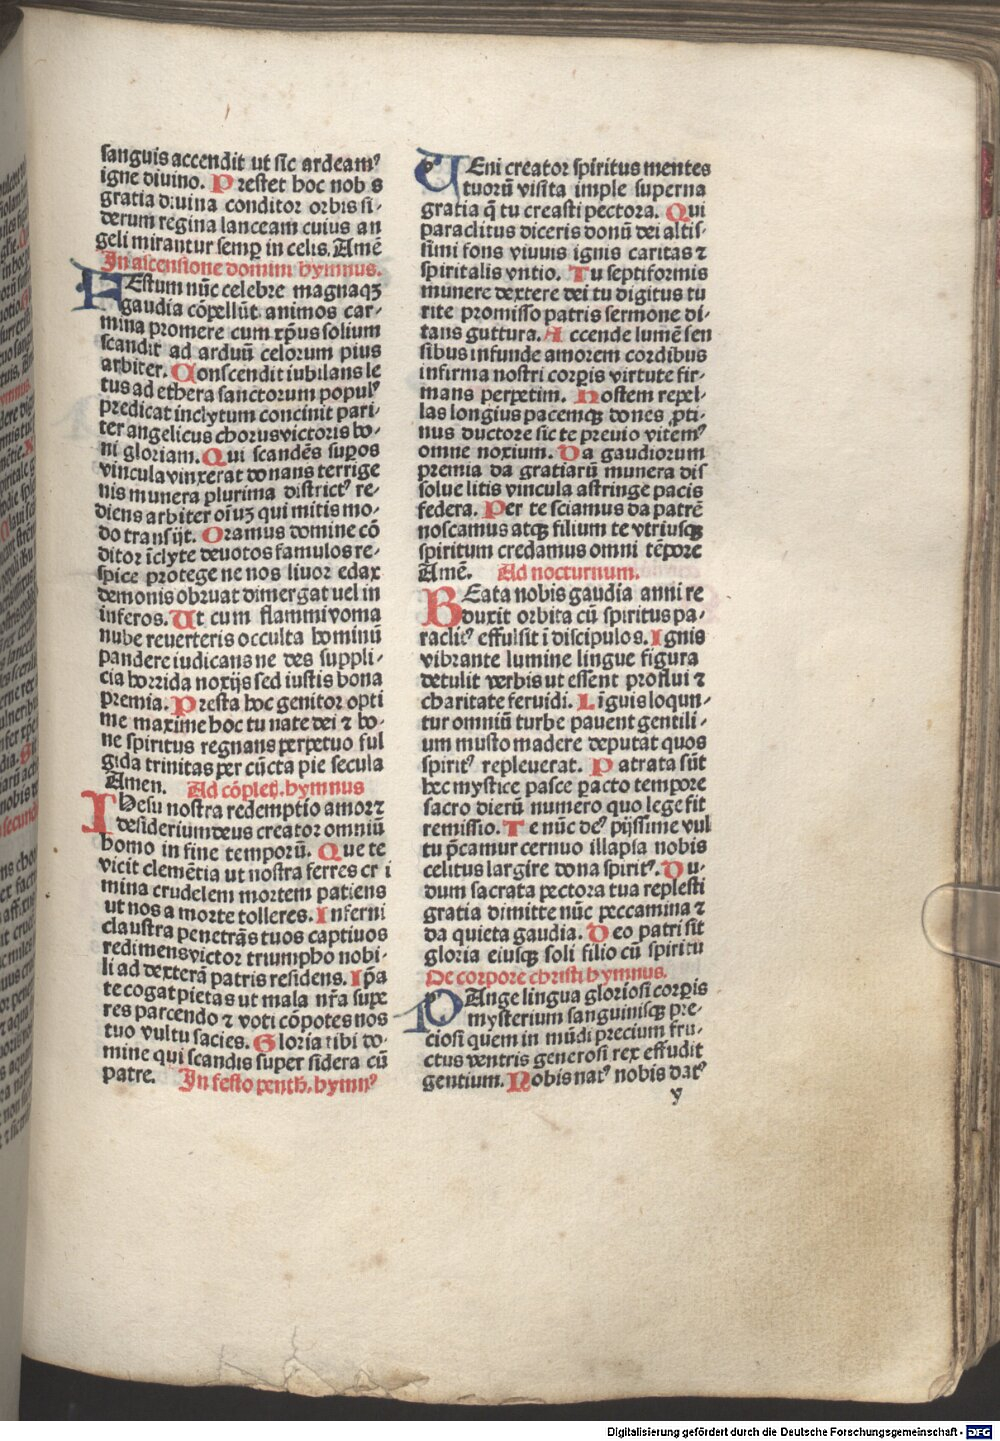 sanguis accendit ut sic ardeamꝰ
igne divino. Prestet hoc nob s
gratia divina conditor orbis si-
derum regina lanceam cuius an
geli mirantur semp in celis. Amē
In ascensione domini hymnus.
FEstum nūc celebre magnaqꝫ
gaudia cōpellūt animos car-
mina promere cum xp̄us solium
scandit ad arduū celorum pius
arbiter. Conscendit iubilans le
tus ad ethera sanctorum populꝰ
predicat inclytum concinit pari-
ter angelicus chorus victoris bo-
ni gloriam. Qui scandēs suꝑos
vincula vinxerat donans terrige
nis munera plurima districtꝰ re-
diens arbiter oīuꝫ qui mitis mo-
do transijt. Oramus domine cō
ditor īclyte devotos famulos re-
spice protege ne nos livor edax
demonis obruat dimergat uel in
inferos. Ut cum flammivoma
nube reuerteris occulta hominū
pandere iudicans ne des suppli-
cia horrida noxijs sed iustis bona
premia. Presta hoc genitor opti
me maxime hoc tu nate dei ⁊ bo-
ne spiritus regnans perpetuo ful
gida trinitas per cūcta pie secula
Amen. Ad cōpletꝭ. hymnus
IHesu nostra redemptio amor⁊
desiderium deus creator omniū
homo in fine temporū. Que te
vicit clemētia ut nostra ferres cr i
mina crudelem mortem patiens
ut nos a morte tolleres. Inferni
claustra penetrās tuos captiuos
redimens victor triumpho nobi-
li ad dexterā patris residens. Ip̄a
te cogat pietas ut mala nr̄a supe
res parcendo ⁊ voti cōpotes nos
tuo vultu sacies. Gloria tibi do-
mine qui scandis super sidera cū
patre. In festo penth. hymnꝰ
VEni creator spiritus mentes
tuorū visita imple superna
gratia q̄ tu creasti pectora. Qui
paraclitus diceris donū dei altis-
simi fons viuus ignis caritas ⁊
spiritalis vntio. Tu septiformis
munere dextere dei tu digitus tu
rite promisso patris sermone di-
tans guttura. Accende lumē sen
sibus infunde amorem cordibus
infirma nostri corꝑis virtute fir-
mans perpetim. Hostem repel-
las longius pacemqꝫ dones ꝓti-
nus ductore sic te previo vitemꝰ
omne noxium. Da gaudiorum
premia da gratiarū munera dis
solue litis vincula astringe pacis
federa. Per te sciamus da patrē
noscamus atqꝫ filium te vtriusqꝫ
spiritum credamus omni tēpore
Amē. Ad nocturnum.
BEata nobis gaudia anni re
duxit orbita cū spiritus pa-
raclitꝰ effulsit ī discipulos. Ignis
vibrante lumine lingue figura
detulit verbis ut essent proflui ⁊
charitate feruidi. Līguis loqun-
tur omniū turbe pauent gentili-
um musto madere deputat quos
spiritꝰ repleuerat. Patrata sūt
hec mystice pasce ꝑacto tempore
sacro dierū numero quo lege fit
remissio. Te nūc deꝰ pijssime vul
tu p̄camur cernuo illapsa nobis
celitus largire dona spiritꝰ. Du-
dum sacrata pectora tua replesti
gratia dimitte nūc peccamina ⁊
da quieta gaudia. Deo patri sit
gloria eiusqꝫ soli filio cū spiritu
De corpore christi hymnus.
PAnge lingua gloriosi corꝑis
mysterium sanguinisqꝫ pre-
ciosi quem in mūdi precium fru-
ctus ventris generosi rex effudit
gentium. Nobis natꝰ nobis datꝰ
y
Digitalisierung gefördert durch die Deutsche Forschungsgemeinschaft - DFG